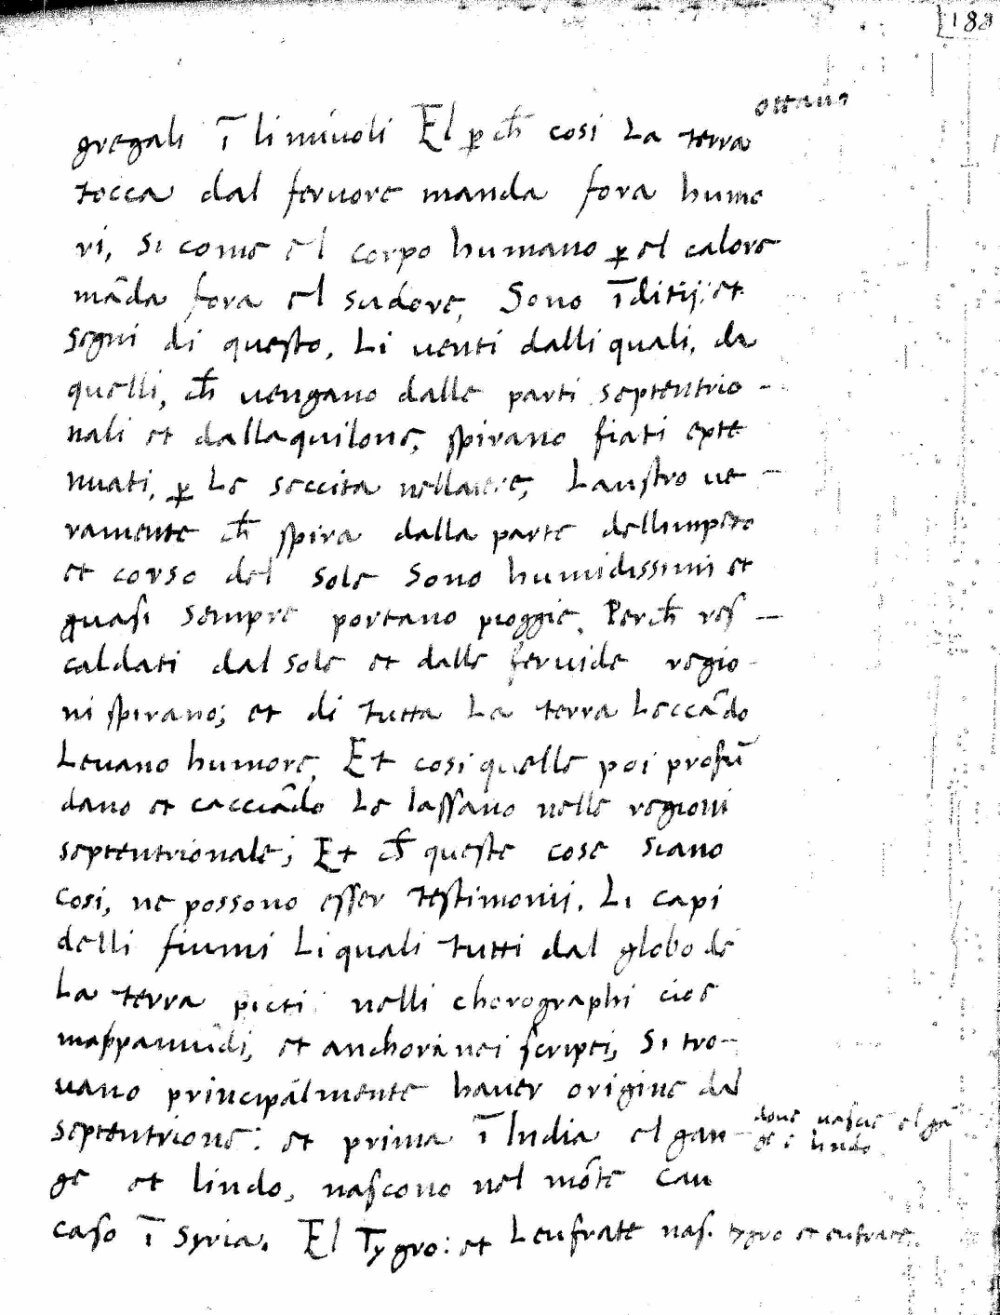 183
ottavo
gregali ī li nuuoli El ꝑ ch̄ cosi La terra
tocca dal feruore manda fora humo
ri, si come el corpo humano ꝑ el calore
māda fora el sudore, Sono īditij: et
segni di questo, Li uenti dalli quali, da
quelli, ch̄ uengano dalle parti septentrio-
nali et dallaquilone, spirano fiati exte
nuati, ꝑ Le seccita nellaere, Laustro ue-
ramente ch̄ spira dalla parte dellimpeto
et corso del sole sono humidissimi et
quasi sempre portano pioggie. Perch̄ res-
caldati dal sole et dalle feruide regio-
ni spirano; et di tutta La terra Leccādo
Leuano humore, Et cosi quelle poi profū
dano et cacciādo Le lassano nelle regioni
septentrionale; Et ch̄ queste cose siano
cosi, ne possono esser testimonij. Li capi
delli fiumi Li quali tutti dal globo de
La terra picti nelli chorographi cioe
mappamūdi, et anchora nei scripti, Si tro-
uano principalmente hauer origine dal
septentrione: et prima ī India el gan-
doue nascie el gā
ge e lindo
ge et lindo, nascono nel mōte Cau
caso ī Syria. El Tygro: et Leufrate nas. tygro et eufrate.